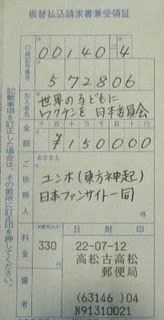 振替払込請求書兼受領証
00140-4
572806
世界の子どもに
ワクチンを 日本委員会
金額
¥150000
おなまえ
ユンホ(東方神起)
日本ファンサイト一同
様
ご依頼人
料金
330
円
日附印
22-07-12
高松古高松
郵便局
備考
(63146)04
N91310021
記載事項を訂正した場合は、その箇所に訂正印を押してください。